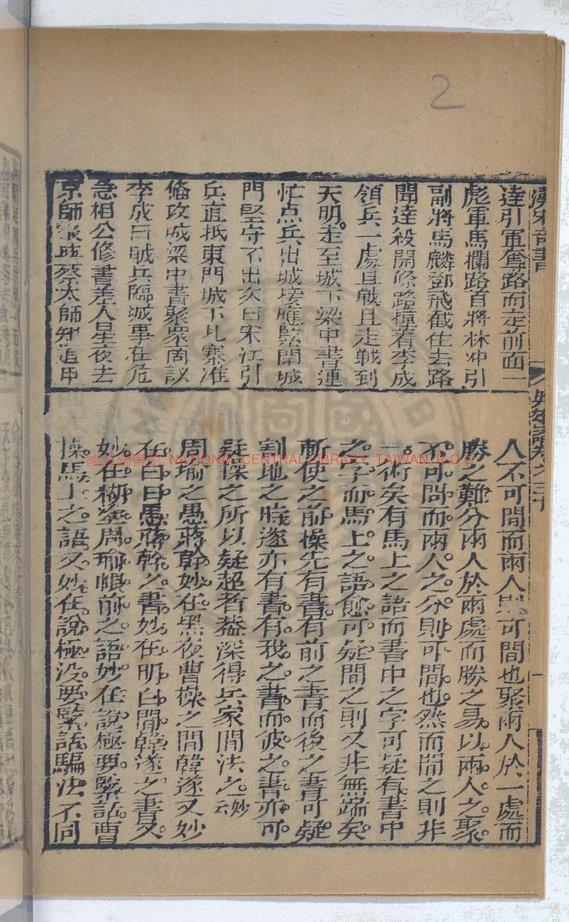 2
漢宋奇書
達引軍奪路而走前面一
彪軍馬攔路首將林冲引
副將馬麟鄧飛截住去路
聞達殺開條路撞着李成
領兵一處且戰且走戰到
天明走至城下梁中書連
忙点兵出城接應緊閉城
門堅守不出次日宋江引
兵直抵東門城下扎寨准
俻攻城梁中書聚衆商議
李成曰賊兵臨城事在危
急相公修書差人星夜去
京師
蔡太師知道甲
人不可間而兩人則可間也聚兩人於一處而
勝之難分兩人於兩處而勝之易以兩人之聚
不可間而兩人之分則可間也然而間之則非
一術矣有馬上之語而書中之字可疑有書中
之字而馬上之語愈可疑間之則又非無端矣
斬使之前操先有書有前之書而後之書可疑
割地之時遂亦有書有我之書而彼之書亦可
疑操之所以疑超者葢深得兵家間法之妙云
周瑜之愚蔣幹妙在黑夜曹操之間韓遂又妙
在白日愚蔣幹之書妙在明白間韓遂之書又
妙在糊塗周瑜帳前之語妙在說極要緊話曹
操馬上之語又妙在說極没要緊話騙法不同
NATIONAL CENTRAL LIBRARY, TAIWAN, R.O.C